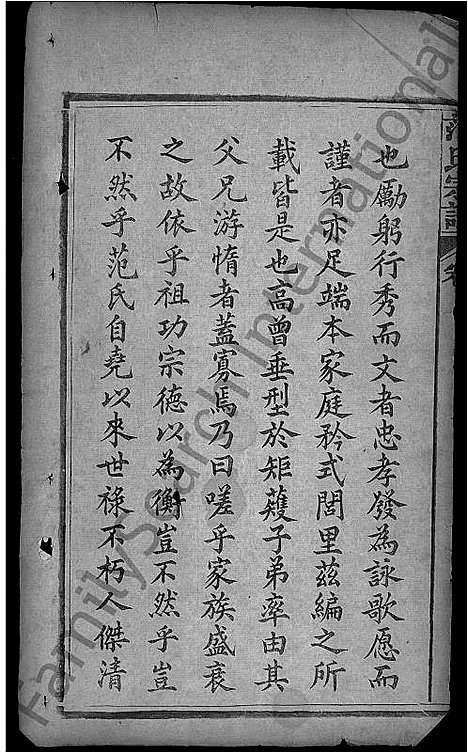 范氏宗譜 卷
也勵躬行秀而文者忠孝發為詠歌愿而
謹者亦足端本家庭矜式閭里茲編之所
載皆是也高曾垂型於矩矱子弟率由其
父兄游惰者蓋寡焉乃曰嗟乎家族盛衰
之故依乎祖功宗德以為衡豈不然乎豈
不然乎范氏自堯以來世祿不朽人傑清
FamilySearch International